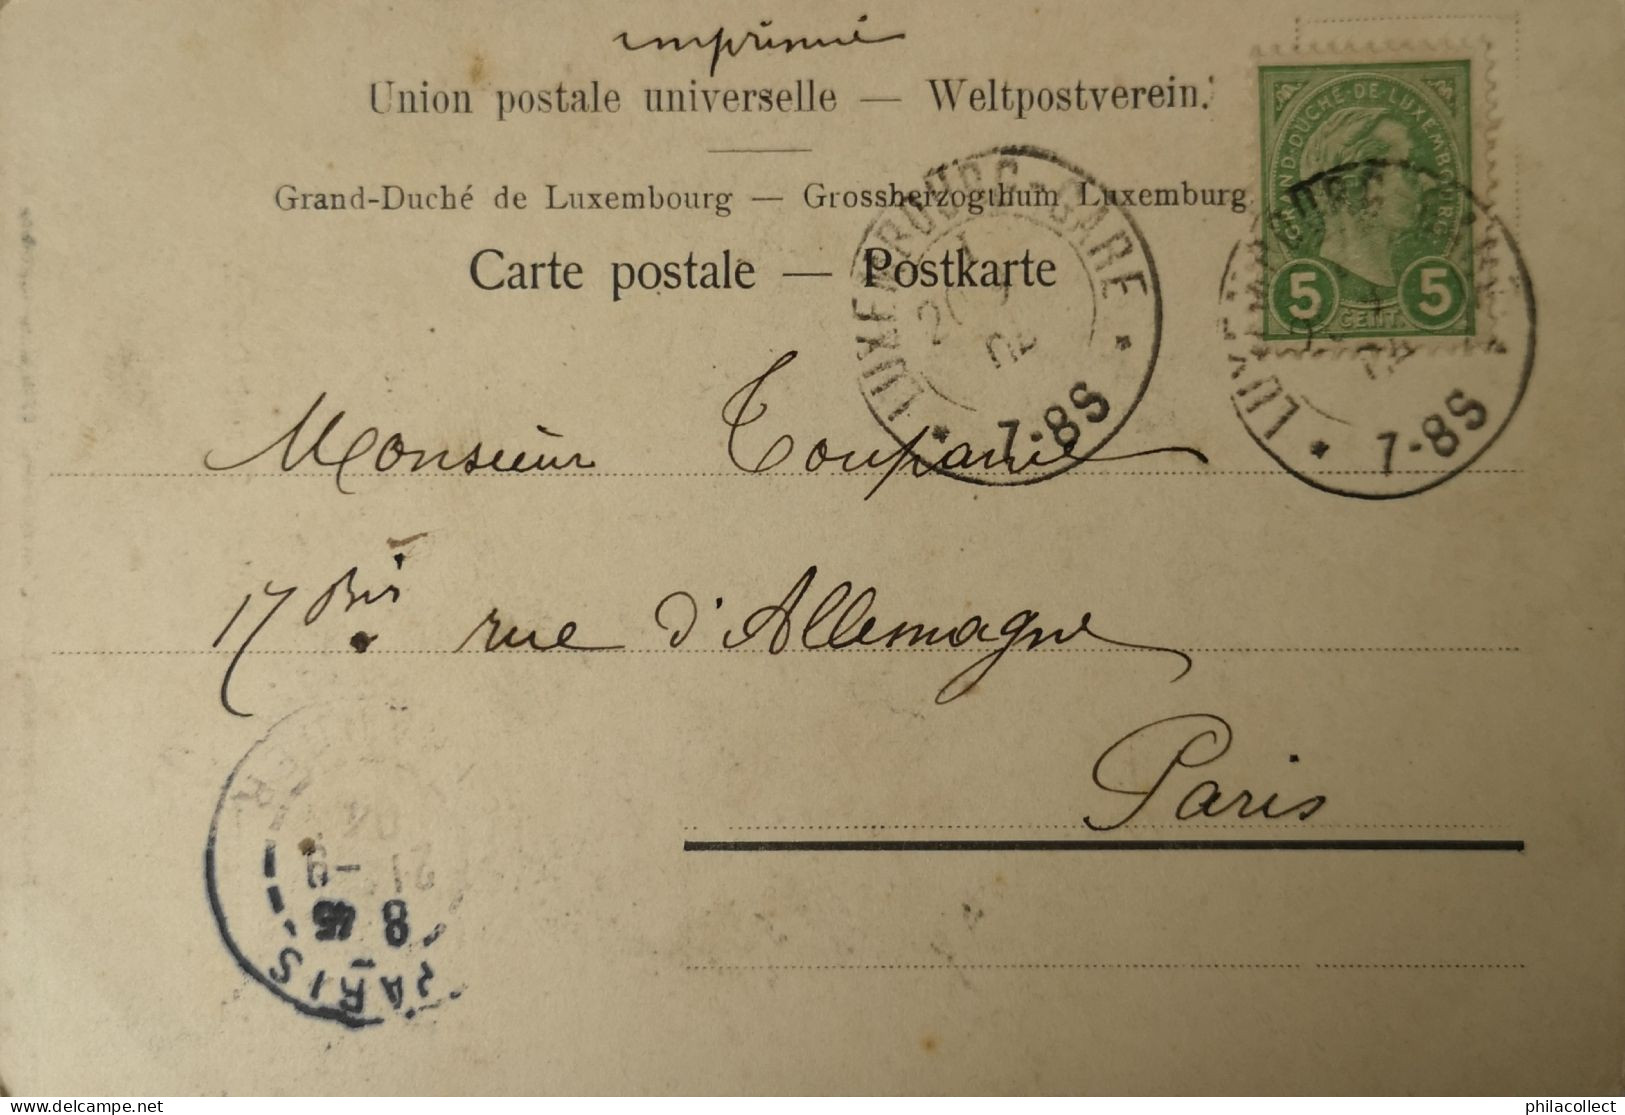 imprimé
Union postale universelle — Weltpostverein.
Grand-Duché de Luxembourg — Grossherzogthum Luxemburg
Carte postale — Postkarte
GRAND-DUCHÉ-DE-LUXEMBOURG
5 5
CENT.
LUXEMBOURG-GARE
7-8S
LUXEMBOURG
7-8S
Monsieur
17 Bis rue d'Allemagne
Paris
PARIS
8 45
21
04
philacollect